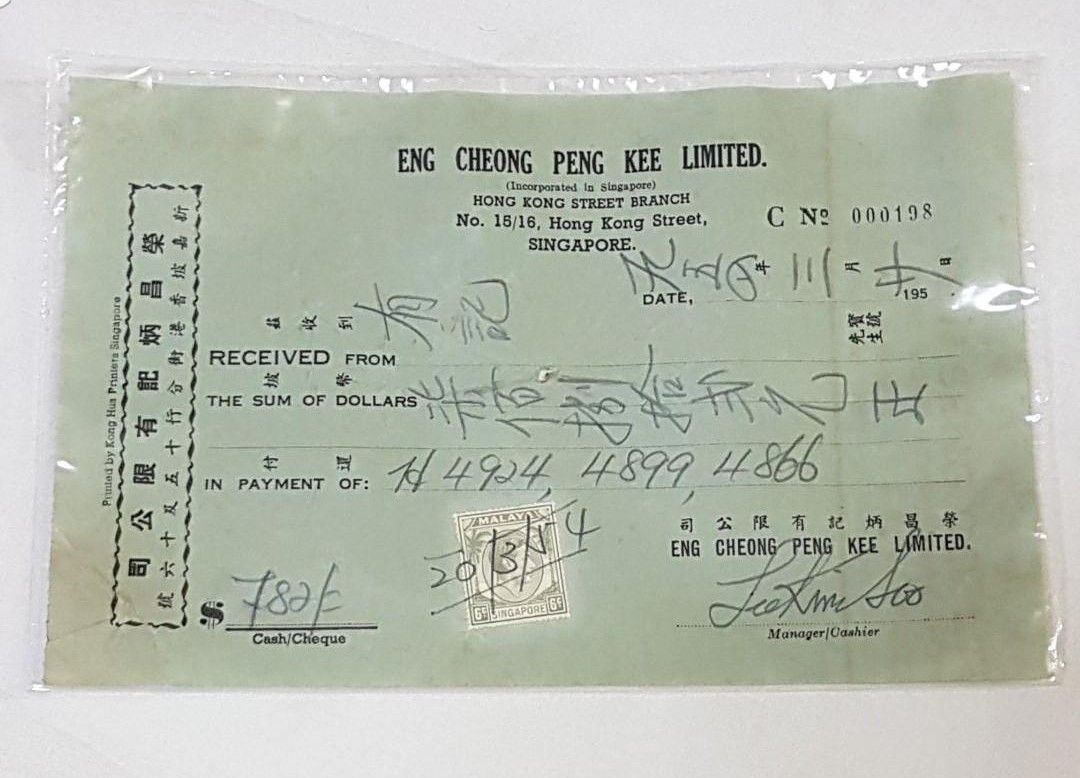 ENG CHEONG PENG KEE LIMITED.
(Incorporated in Singapore)
HONG KONG STREET BRANCH
No. 15/16, Hong Kong Street,
SINGAPORE.
C Nº 000198
五四年三月廿日
DATE, 195
茲收到 有記 寶號先生
RECEIVED FROM
坡幣 柒佰捌拾弍元正
THE SUM OF DOLLARS
付還
IN PAYMENT OF: H 4924, 4899, 4866
MALAYA
20/3/54
6c SINGAPORE 6c
司公限有記炳昌榮
ENG CHEONG PENG KEE LIMITED.
Lee Kim Soo
Manager/Cashier
$ 782/-
Cash/Cheque
榮昌炳記有限公司
新嘉坡香港街分行十五及十六號
Printed by Kong Hua Printers Singapore